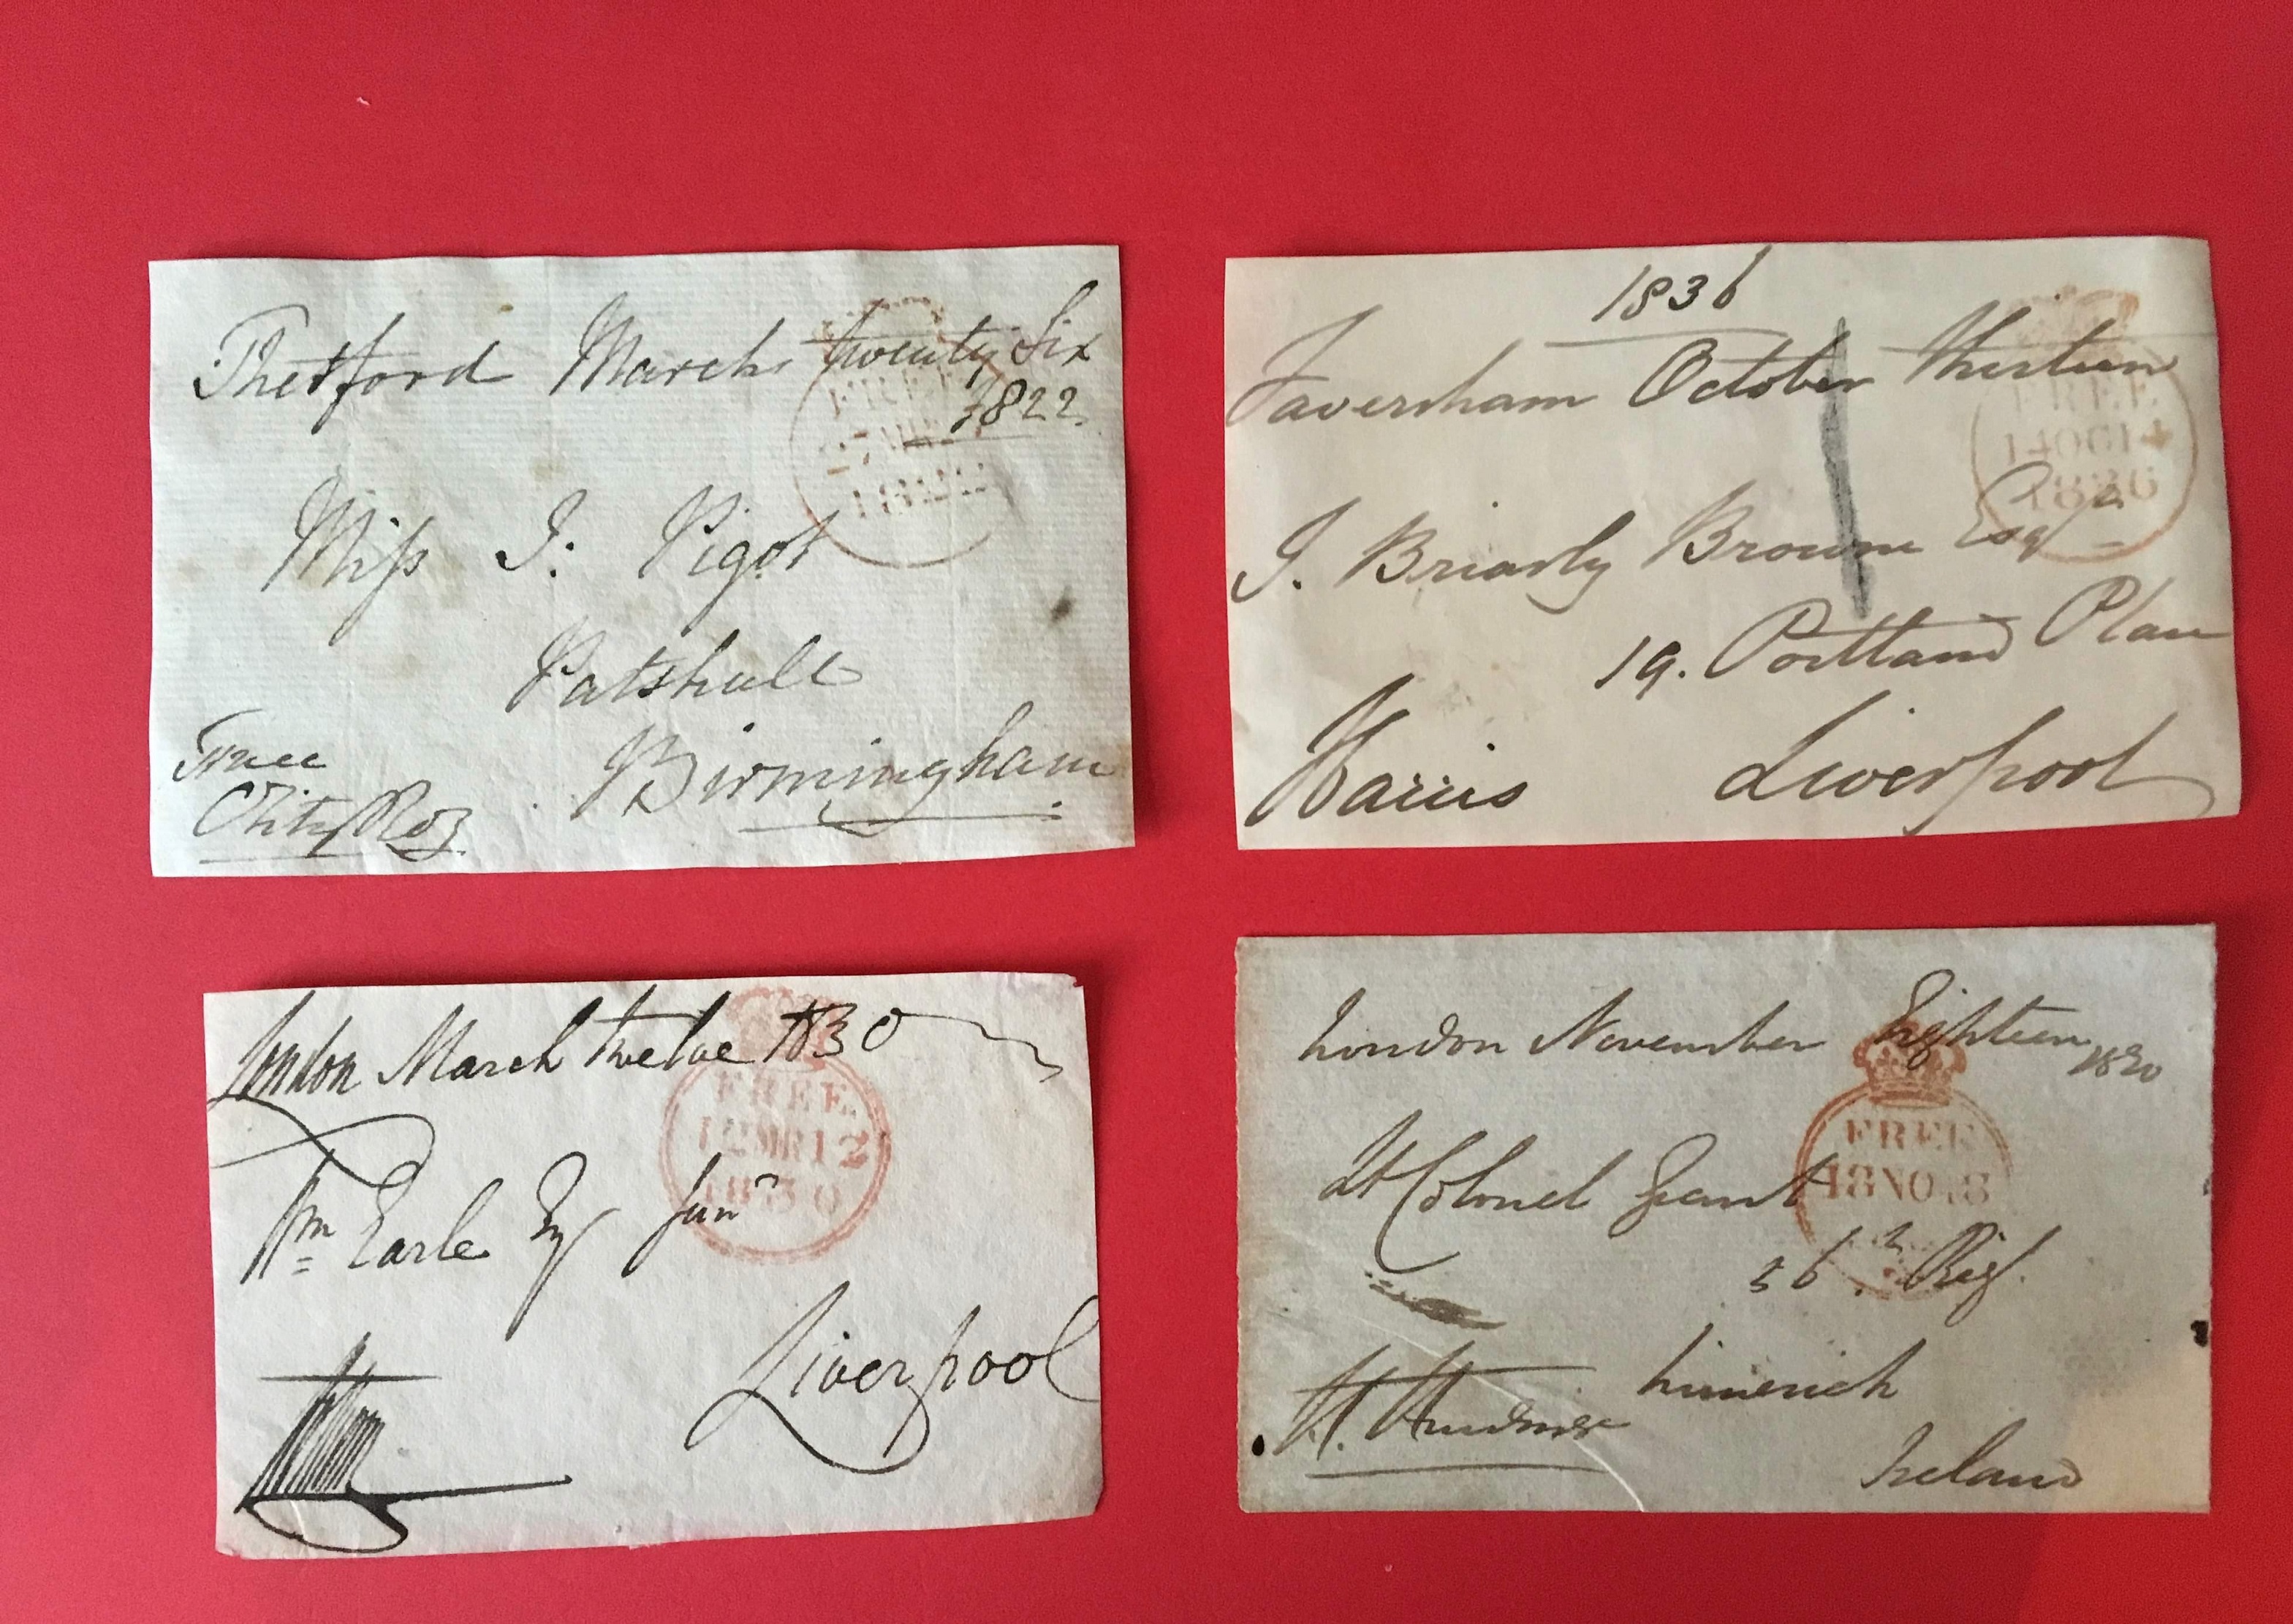 Thetford March twenty Six
1822
FREE
27 MR
Miss J: Pigot
Patshull
Birmingham
Free
1836
Faversham October thirteen
FREE
14 OC 14
1836
J. Briarly Browne Esqr
19. Portland Place
Harris
Liverpool
London March twelve 1830
FREE
12 MR 12
1830
Wm Earle Esq Junr
Liverpool
London November Eighteen 1830
FREE
18 NO 18
Lt Colonel Grant
Regt
Limerick
Ireland